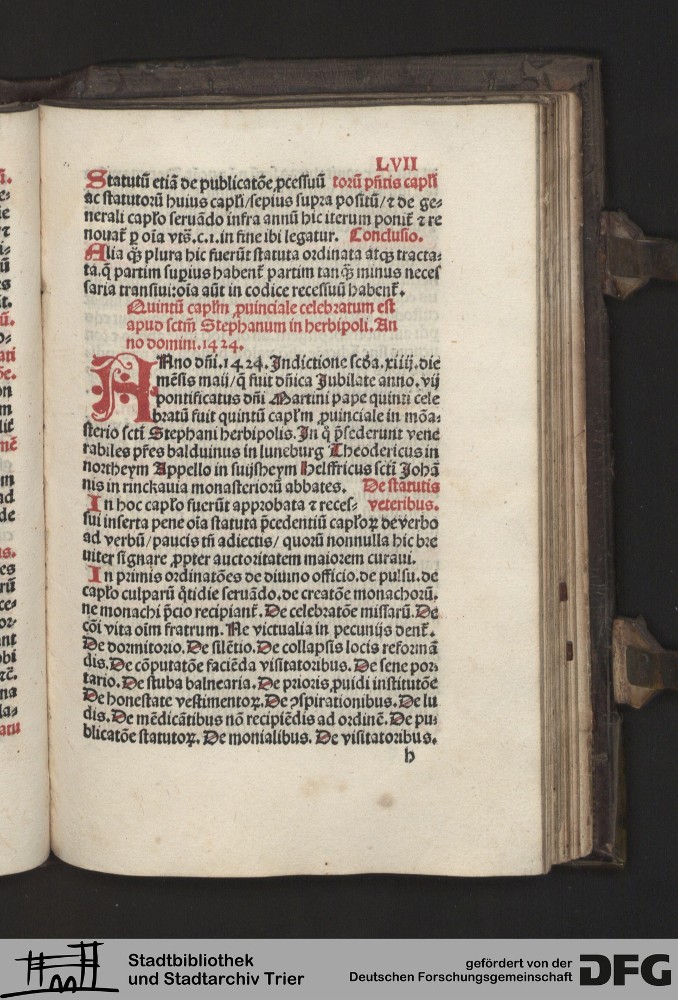 LVII
Statutū etiā de publicatõe ꝓcessuū torū pñtis capli
ac statutorū huius capli/sepius supra positū/⁊ de ge⸗
nerali capło seruãdo infra annū hic iterum ponit̃ ⁊ re
nouat̃ ꝑ oĩa vtś.c.1.in fine ibi legatur. Conclusio.
Alia qꝫ plura hic fuerūt statuta ordinata atqꝫ tracta⸗
ta.q̃ partim supius habent̃ partim tanqꝫ minus neces
saria transiui:oĩa aūt in codice recessuū habent̃.
Quintū caplm ꝓuinciale celebratum est
apud sctm̄ Stephanum in herbipoli.An
no domini.1424.
ANno dñi.1424.Indictione scđa.xiiij.die
mēsis maij/q̃ fuit dñica Jubilate anno.vij
pontificatus dñi Martini pape quinti cele
bratū fuit quintū caplm ꝓuinciale in mõa⸗
sterio sctĩ Stephani herbipolis.In q̊ p̃sederunt vene
rabiles pr̃es balduinus in luneburg Theodericus in
northeym Appello in suijsheym Helffricus sctĩ Johā
nis in rinckauia monasteriorū abbates. De statutis
In hoc capło fuerūt approbata ⁊ reces⸗ veteribus.
sui inserta pene oĩa statuta p̃cedentiū capłoꝝ de verbo
ad verbū/paucis tñ adiectis/quorū nonnulla hic bre
uiter signare ꝓpter auctoritatem maiorem curaui.
In primis ordinatões de diuino officio.de pulsu.de
capło culparū q̃tidie seruãdo.de creatõe monachorū.
ne monachi p̃cio recipiant̃.De celebratõe missarū.De
cõi vita oĩm fratrum.Ne victualia in pecunijs dent̃.
De dormitorio.De silētio.De collapsis locis reformã
dis.De cõputatõe faciēda visitatoribus.De sene por⸗
tario.De stuba balnearia.De prioris ꝓuidi institutõe
De honestate vestimentoꝝ.De ꝯspirationibus.De lu
dis.De mēdicãtibus nõ recipiēdis ad ordinē.De pu⸗
blicatõe statutoꝝ.De monialibus.De visitatoribus.
h
Stadtbibliothek
und Stadtarchiv Trier
gefördert von der
Deutschen Forschungsgemeinschaft DFG